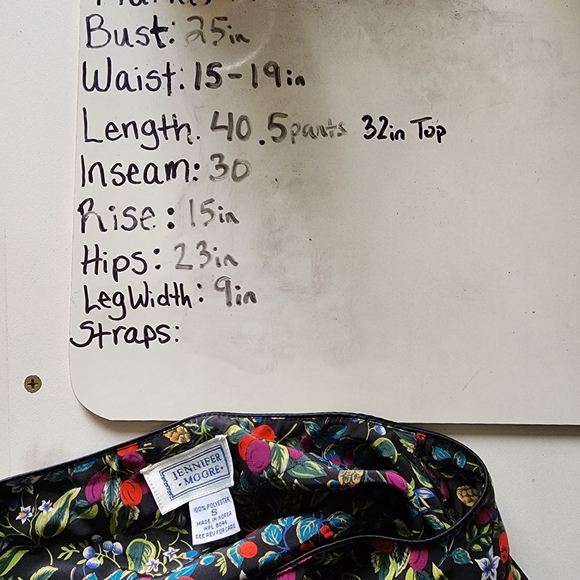 Bust: 25in
Waist: 15-19in
Length. 40.5pants 32in Top
Inseam: 30
Rise: 15in
Hips: 23in
Leg Width: 9in
Straps:
JENNIFER
• MOORE •
100% POLYESTER
S
MADE IN KOREA
WPL 8046
SEE REV FOR CARE